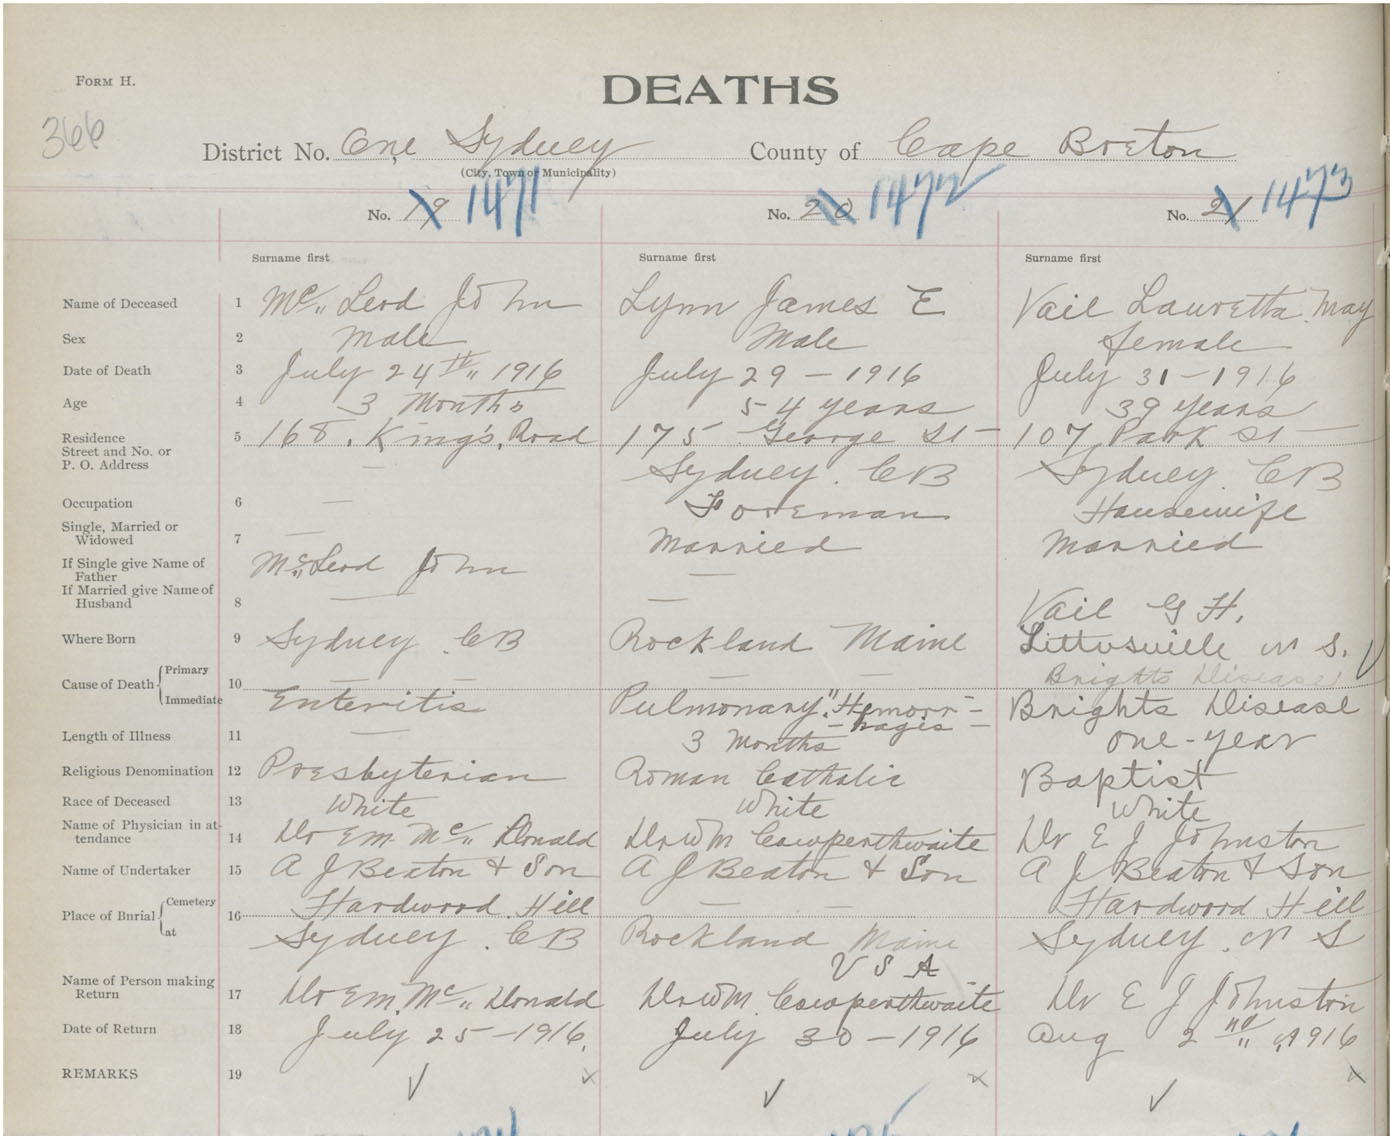 FORM H.
DEATHS
366
District No. One Sydney County of Cape Breton
(City, Town or Municipality)
No. 19 1471 No. 20 1472 No. 21 1473
Surname first Surname first Surname first
Name of Deceased 1 Mc,, Leod John Lynn James E Vail Lauretta May
Sex 2 Male Male female
Date of Death 3 July 24th,, 1916 July 29 - 1916 July 31 - 1916
Age 4 3 Months 54 years 39 years
Residence 5 168. King's, Road 175 George St - 107 Park St -
Street and No. or
P. O. Address — Sydney. CB Sydney. CB
Occupation 6 — Foreman Housewife
Single, Married or
Widowed 7 — Married Married
If Single give Name of
Father Mc,,Leod John —
If Married give Name of
Husband 8 — — Vail G H,
Where Born 9 Sydney. CB Rockland Maine Littusville N S. ✓
Cause of Death { Primary 10 — — — — Brights Disease
Immediate Enteritis Pulmonary,, Hemorr-
-hages - Brights Disease
Length of Illness 11 — 3 Months one-year
Religious Denomination 12 Presbyterian Roman Catholic Baptist
Race of Deceased 13 White White White
Name of Physician in at-
tendance 14 Dr EM. Mc,, Donald Dr WM Cowperthwaite Dr E J Johnston
Name of Undertaker 15 A J Beaton & Son A J Beaton & Son A J Beaton & Son
Place of Burial { Cemetery 16 Hardwood Hill — — Hardwood Hill
at Sydney. CB Rockland Maine Sydney. N S
U S A
Name of Person making
Return 17 Dr EM. Mc,, Donald Dr WM. Cowperthwaite Dr E J Johnston
Date of Return 18 July 25 - 1916. July 30 - 1916 Aug 2nd,, 1916
REMARKS 19 ✓ x ✓ x ✓ x